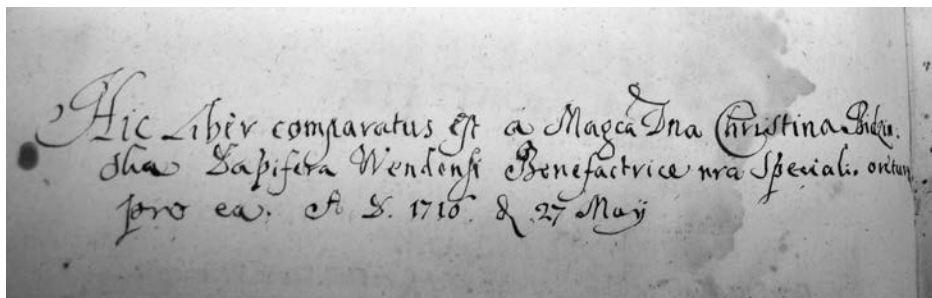 Hic Liber comparatus est a Magca Dna Christina Bidzin:
ska Dapifera Wendensi Benefactrice nra speciali. oretur
pro ea. A D. 1716. d 27 May